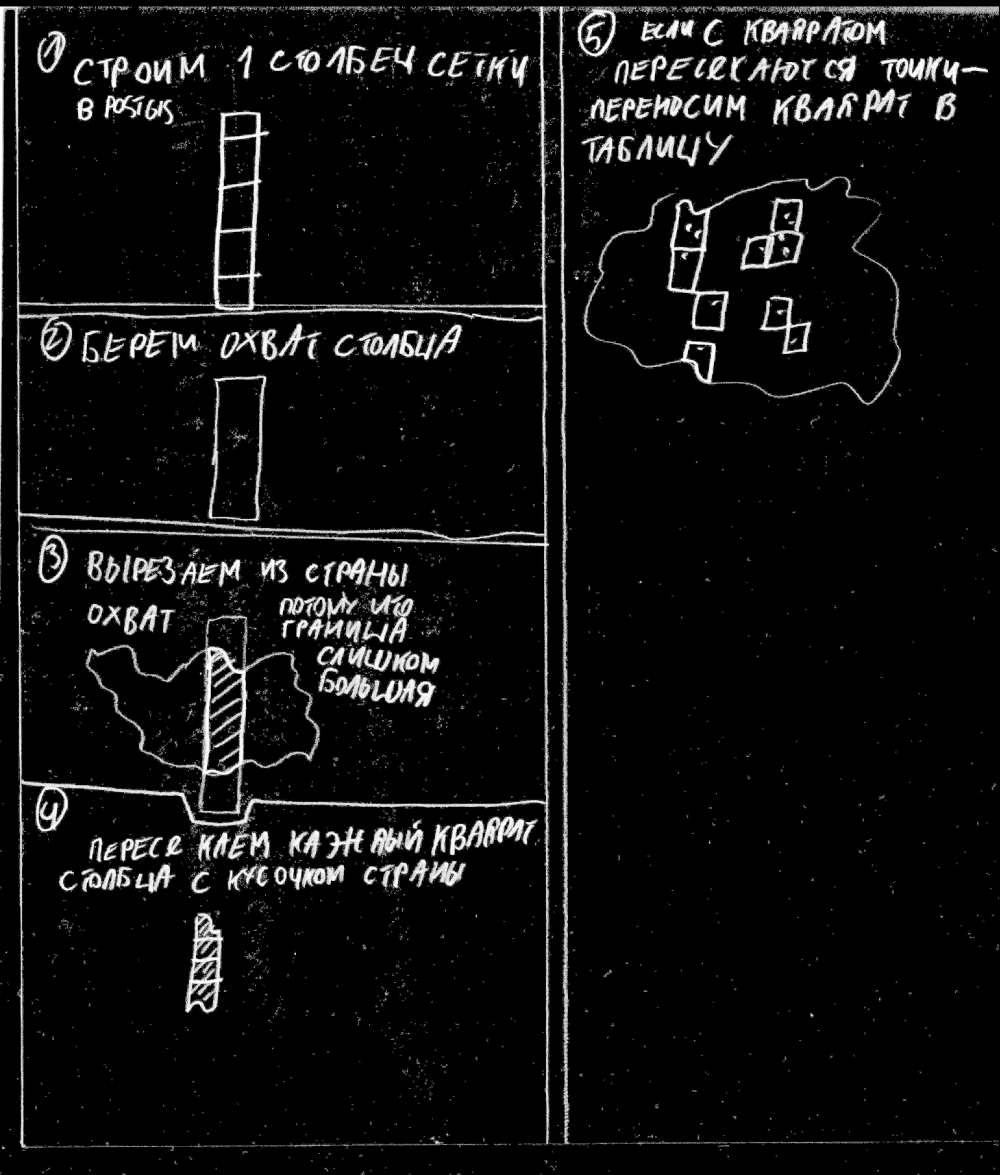 ① СТРОИМ 1 СТОЛБЕЦ СЕТКИ
В POSTGIS
② БЕРЕМ ОХВАТ СТОЛБЦА
③ ВЫРЕЗАЕМ ИЗ СТРАНЫ
ОХВАТ
ПОТОМУ ЧТО
ГРАНИЦА
СЛИШКОМ
БОЛЬШАЯ
④
ПЕРЕСЕКАЕМ КАЖДЫЙ КВАДРАТ
СТОЛБЦА С КУСОЧКОМ СТРАНЫ
⑤ ЕСЛИ С КВАДРАТОМ
ПЕРЕСЕКАЮТСЯ ТОЧКИ—
ПЕРЕНОСИМ КВАДРАТ В
ТАБЛИЦУ